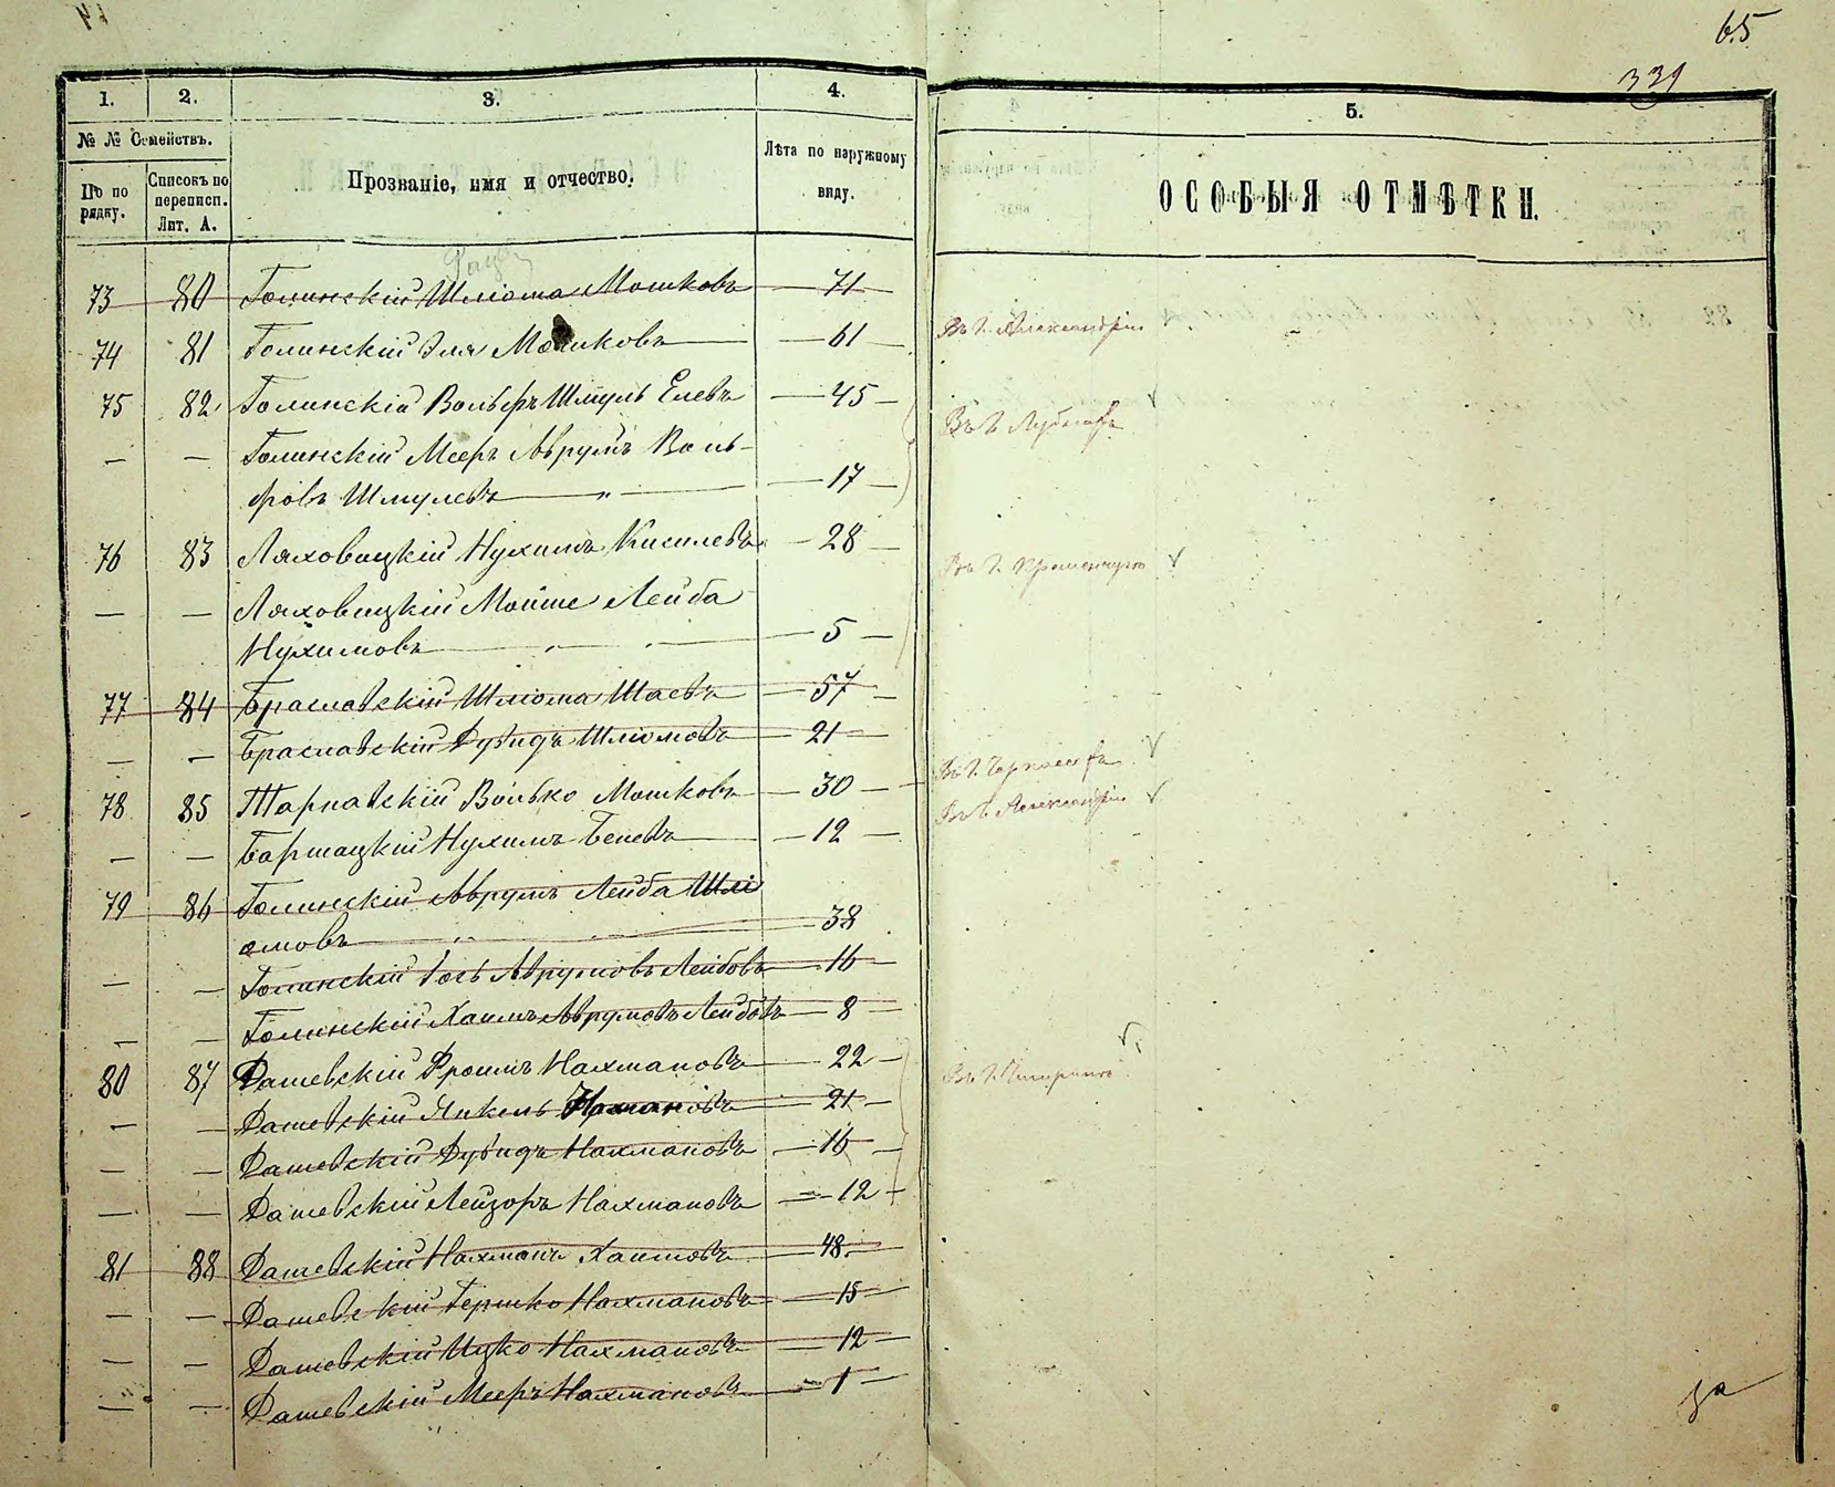 65
339
1. 2. 3. 4. 5.
№ № Семействъ.
По по рядку.
Списокъ по переписи. Лит. А.
Прозваніе, имя и отчество.
Лѣта по наружному виду.
ОСОБЫЯ ОТМѢТКИ.
73 80 Голинскій Шліома Мошковъ — 71 —
74 81 Голинскій Эля Мошковъ — 61 — Въ г. Александріи
75 82 Голинскій Вольфъ Шмуль Елевъ — 45 — Въ г.
— — Голинскій Мееръ Аврумъ Воль-
фовъ Шмулевъ — " — — 17 —
76 83 Ляховецкій Нухимъ Кисилевъ — 28 — Въ г. Кременчугѣ
— — Ляховецкій Мойше Лейба
Нухимовъ — 5 —
77 84 Браславскій Шліома Шаевъ — 57 —
— — Браславскій Дувидъ Шліомовъ — 21 — Въ г. Черкассахъ
78 85 Тарнавскій Волько Мошковъ — 30 — Въ г. Александріи
— — Баршацкій Нухимъ Беневъ — 12 —
79 86 Голинскій Аврумъ Лейба Шлі
омовъ — 38
— — Голинскій Іось Аврумовъ Лейбовъ — 16 —
— — Голинскій Хаимъ Аврумовъ Лейбовъ — 8 —
80 87 Дашевскій Фроимъ Нахмановъ — 22 — Въ г. Чигиринѣ
— — Дашевскій Янкель Нахмановъ — 21 —
— — Дашевскій Дувидъ Нахмановъ — 16 —
— — Дашевскій Лейзоръ Нахмановъ — 12 —
81 88 Дашевскій Нахманъ Хаимовъ — 48 —
— — Дашевскій Гершко Нахмановъ — 15 —
— — Дашевскій Ицко Нахмановъ — 12 —
— — Дашевскій Мееръ Нахмановъ — 1 —
за